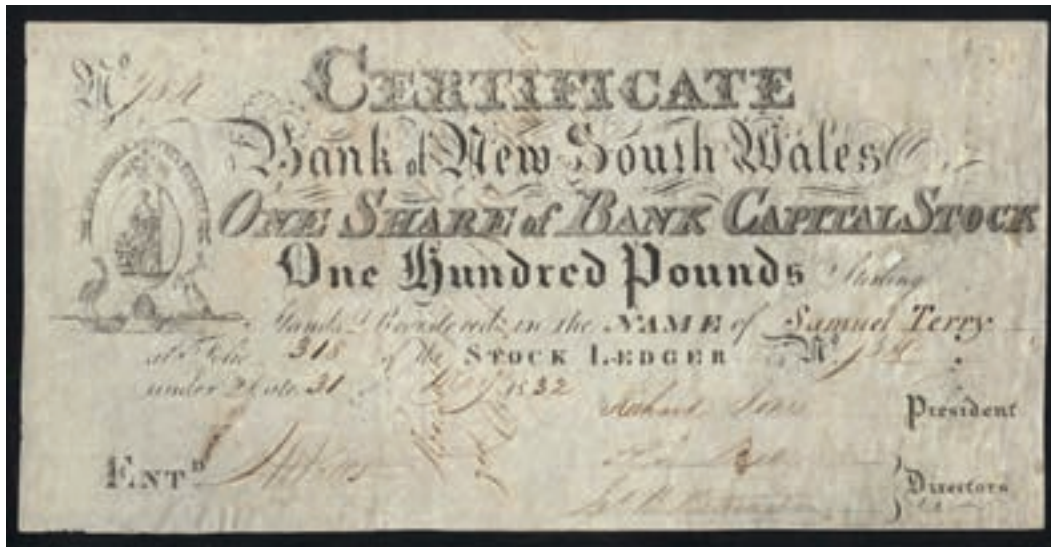 No
CERTIFICATE
Bank of New South Wales
ONE SHARE of BANK CAPITAL STOCK
One Hundred Pounds Sterling
Stands Registered in the NAME of Samuel Terry
at Folio 318 of the STOCK LEDGER No
under Date 31 May 1832
Richard Jones President
ENTD
Directors